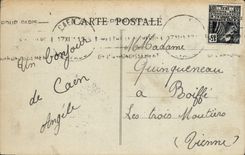 CARTE POSTALE
CAEN
Un bonjour
de Caen
Angèle
Madame
Quinqueneau
à Boiffé
Les trois Moutiers
(Vienne)